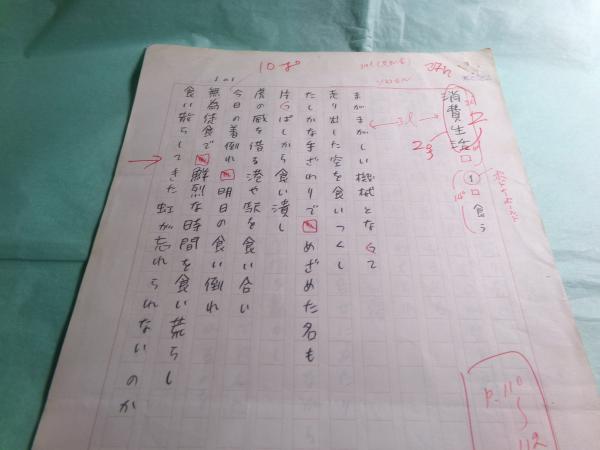 消費生活
① 食う
まがまがしい機械となって
走り出した空を食いつくし
たしかな手ざわりで めざめた名も
片っぱしから食い潰し
虎の威を借る港や駅を食い合い
今日の着倒れ 明日の食い倒れ
無為徒食で 鮮烈な時間を食い荒らし
食い散らしてきた虹が忘れられないのか
10ポ
37h
3l
2号
P.110
〜
112